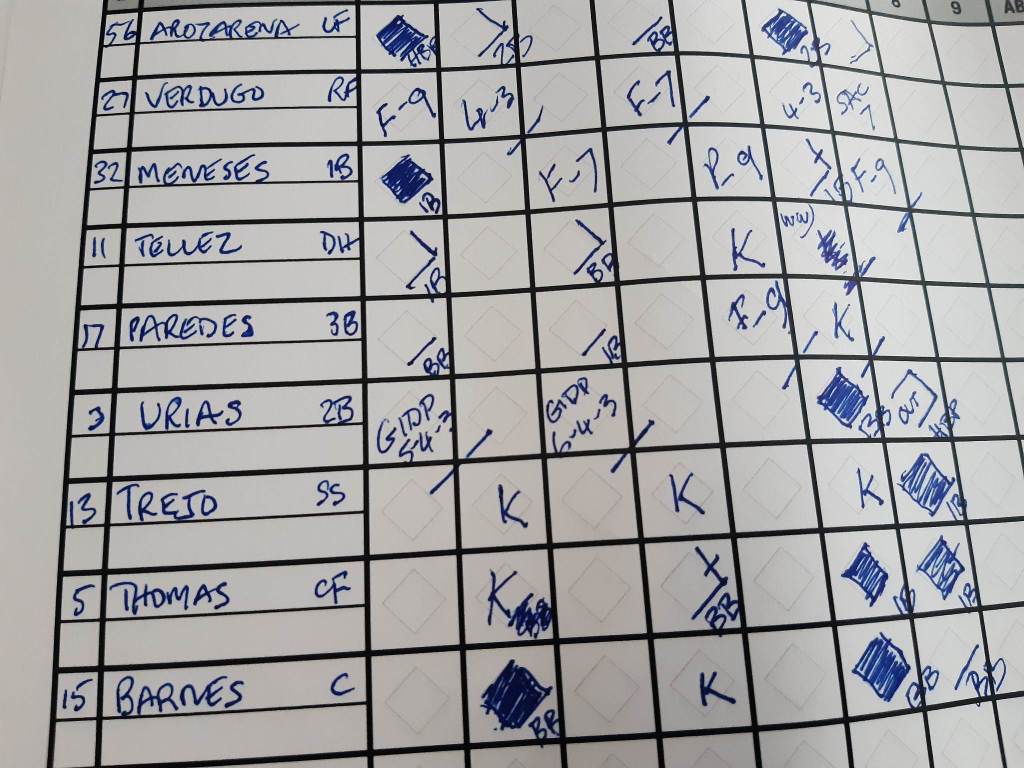 8 9 AB
56 AROZARENA LF HBP 2B BB 2B
27 VERDUGO RF F-9 4-3 F-7 4-3 SAC 7
32 MENESES 1B 1B F-7 F-9 1B F-9
11 TELLEZ DH 1B BB K
17 PAREDES 3B BB 1B F-9 K
3 URIAS 2B GIDP 5-4-3 GIDP 6-4-3 BB OUT HBP
13 TREJO SS K K K 1B
5 THOMAS CF K BB 1B 1B
15 BARNES C BB K BB BB